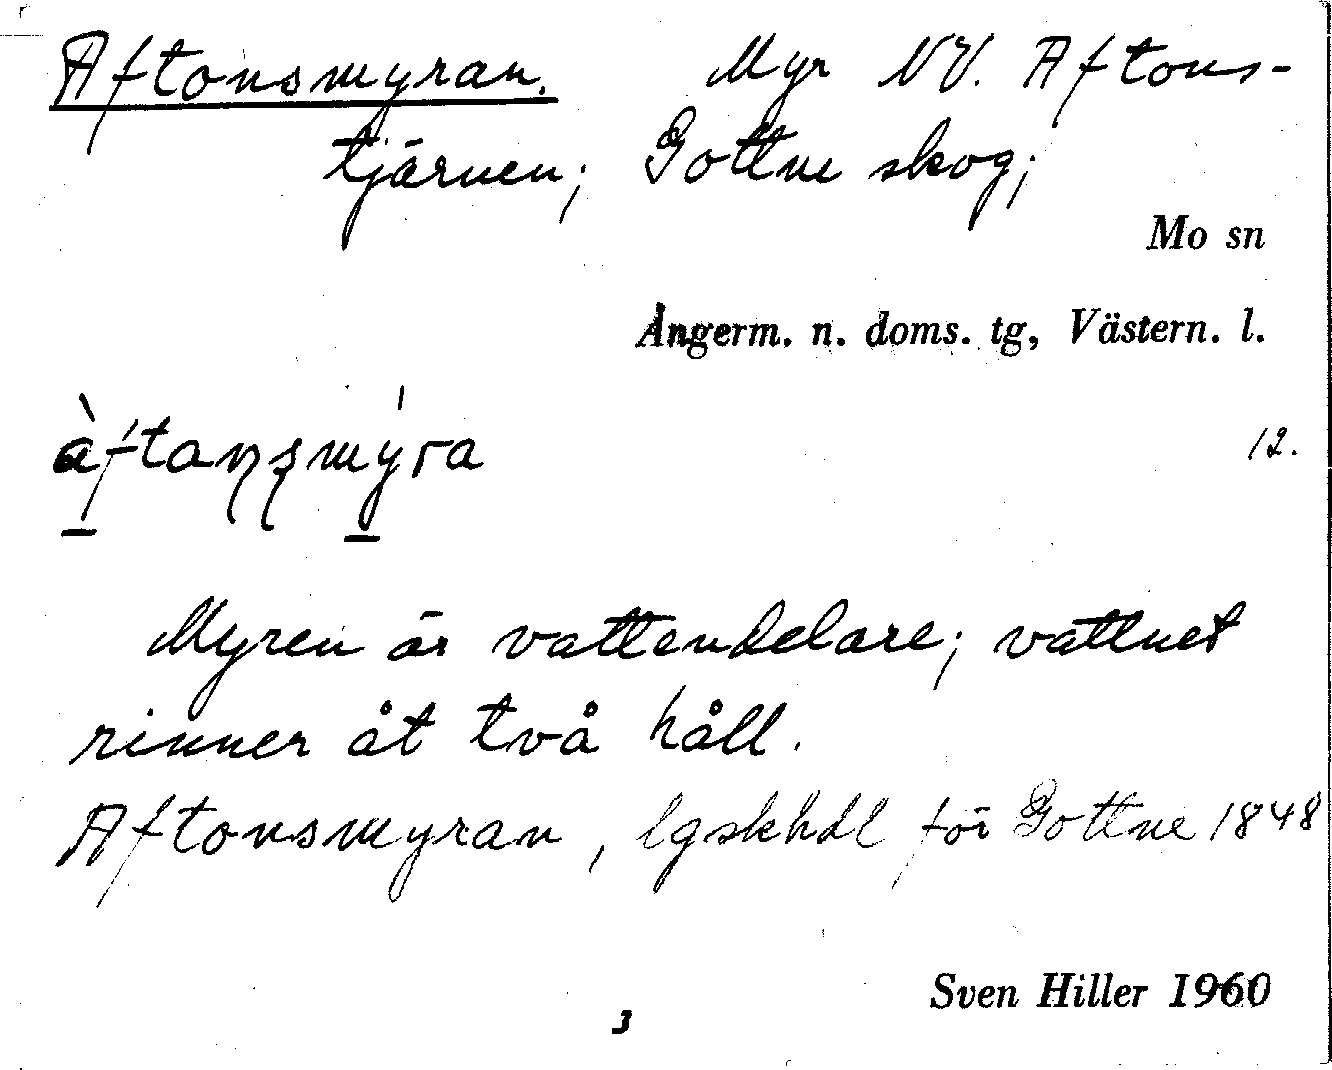 Aftonsmyran. Myr NV. Aftons-
tjärnen; Gottne skog;
Mo sn
Ångerm. n. doms. tg, Västern. l.
àftaņşmýra
12.
Myren är vattendelare; vattnet
rinner åt två håll.
Aftonsmyran, lgskhdl för Gottne 1848
Sven Hiller 1960
3